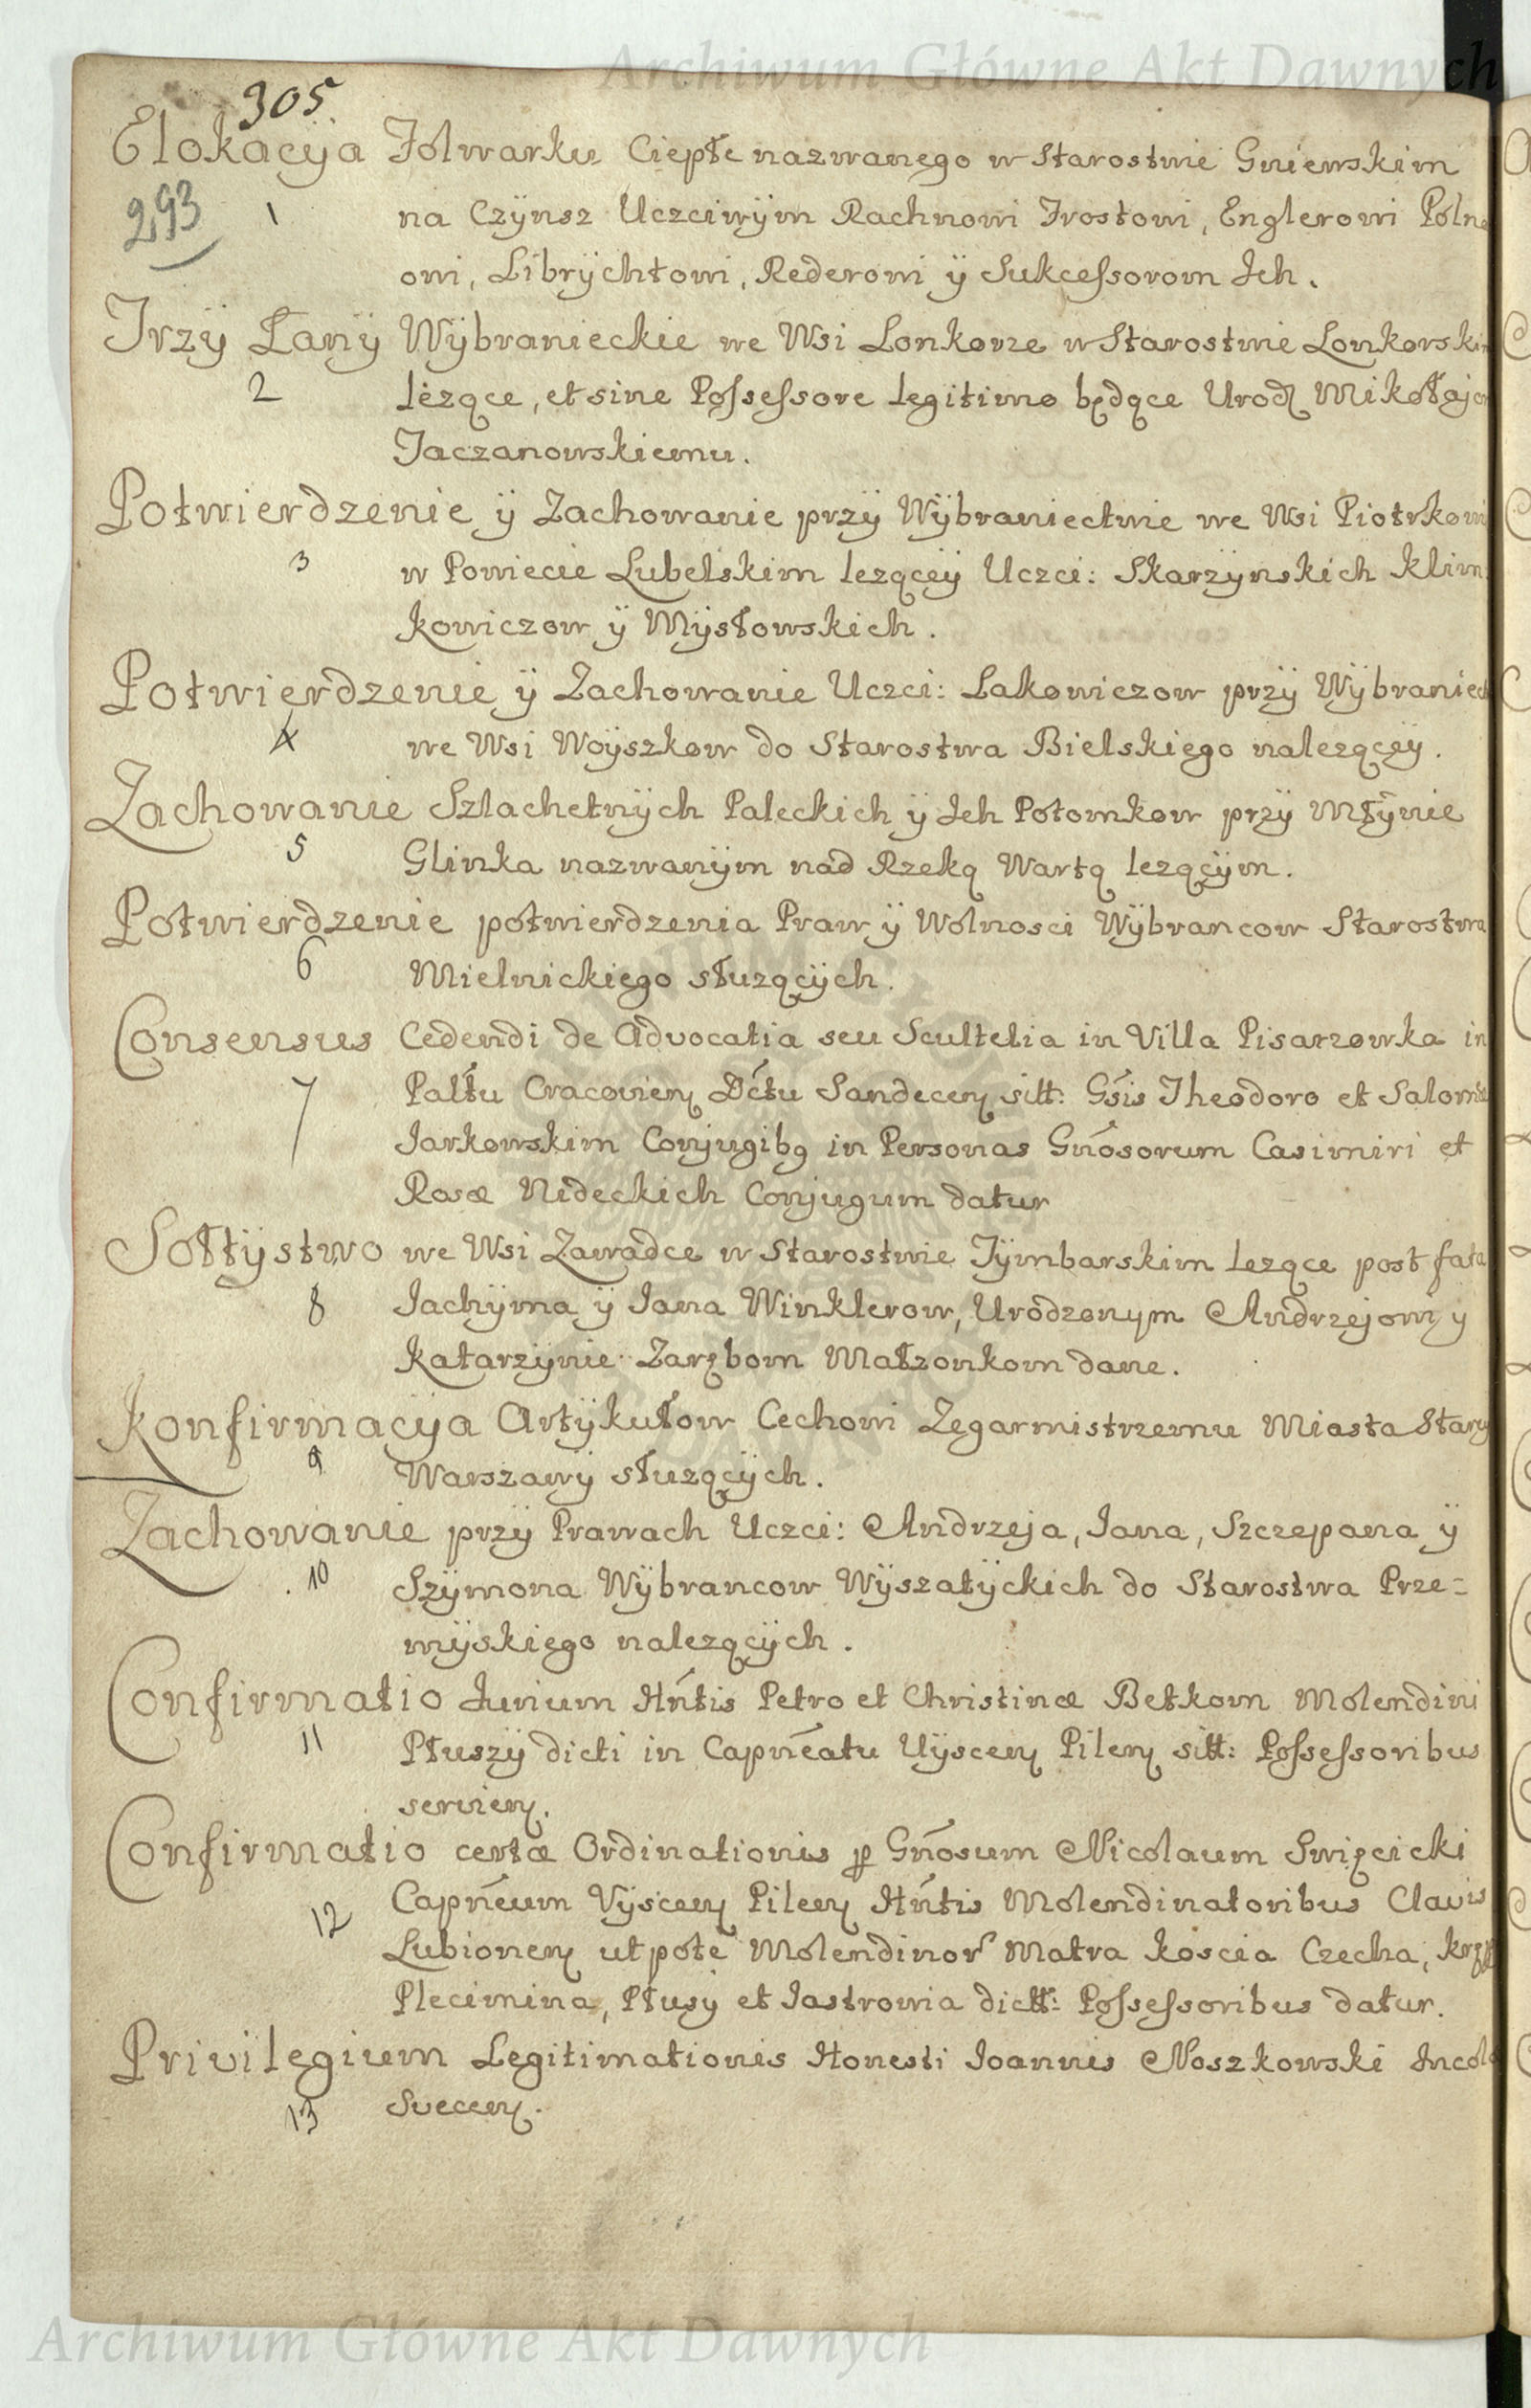 Archiwum Główne Akt Dawnych
305.
Elokacyja Folwarku Ciepłe nazwanego w Starostwie Gniewskim
293 1 na Czÿnsz Uczciwÿm Rachnowi Frostowi, Englerowi Poln
owi, Librÿchtowi, Rederowi ÿ Sukcessorom Ich.
Trzÿ Łanÿ Wÿbranieckie we Wsi Lonkorze w Starostwie Lonkorski
2 leżące, et sine Possessore legitimo będące Urod Mikołajo
Jaczanowskiemu.
Potwierdzenie ÿ Zachowanie przÿ Wÿbraniectwie we Wsi Piotrkowi
3 w Powiecie Lubelskim lezącеÿ Uczci: Skarzÿnskich Klim
kowiczow ÿ Mÿsłowskich.
Potwierdzenie ÿ Zachowanie Uczci: Lakowiczow przÿ Wÿbraniec
4 we Wsi Woÿszkow do Starostwa Bielskiego nalezącеÿ.
Zachowanie Szlachetnÿch Paleckich ÿ Ich Potomkow przÿ Młÿnie
5 Glinka nazwanÿm nad Rzeką Wartą lezącÿm.
Potwierdzenie potwierdzenia Praw ÿ Wolnosci Wÿbrancow Starostwa
6 Mielnickiego słuzącÿch.
Consensus Cedendi de Advocatia seu Scultetia in Villa Pisarzowka in
7 Palttu Cracovien Dctu Sandecen sitt: Gsis Theodoro et Salomeæ
Jarkowskim Conjugibg in Personas Gnosorum Casimiri et
Rosæ Nideckich Conjugum datur
Sołtÿstwo we Wsi Zawadce w Starostwie Tÿmbarskim lezące post fata
8 Jachÿma ÿ Jana Winklerow, Urodzonym Andrzejowi y
Katarzÿnie Zarębom Małzonkom dane.
Konfirmacÿja Artÿkułow Cechowi Zegarmistrzemu Miasta Starÿ
9 Warszawÿ słuzącÿch.
Zachowanie przÿ Prawach Uczci: Andrzeja, Jana, Szczepana ÿ
10 Szÿmona Wÿbrancow Wÿszatÿckich do Starostwa Prze=
mÿskiego nalezącÿch.
Confirmatio Jurium Hntis Petro et Christinæ Betkom Molendini
11 Płuszÿ dicti in Capneatu Uÿscen Pilen sitt: Possessoribus
servien.
Confirmatio certæ Ordinationis p Gnosum Nicolaum Swięcicki
Capneum Vÿscen Pilen Hntis Molendinatoribus Clavis
12 Lubionen utpote Molendinor Matra Koscia Czecha,
Plecimina, Płusÿ et Jastrowia dictt: Possessoribus datur.
Privilegium Legitimationis Honesti Joannis Noszkowski Incol
13 Svecen.
Archiwum Główne Akt Dawnych